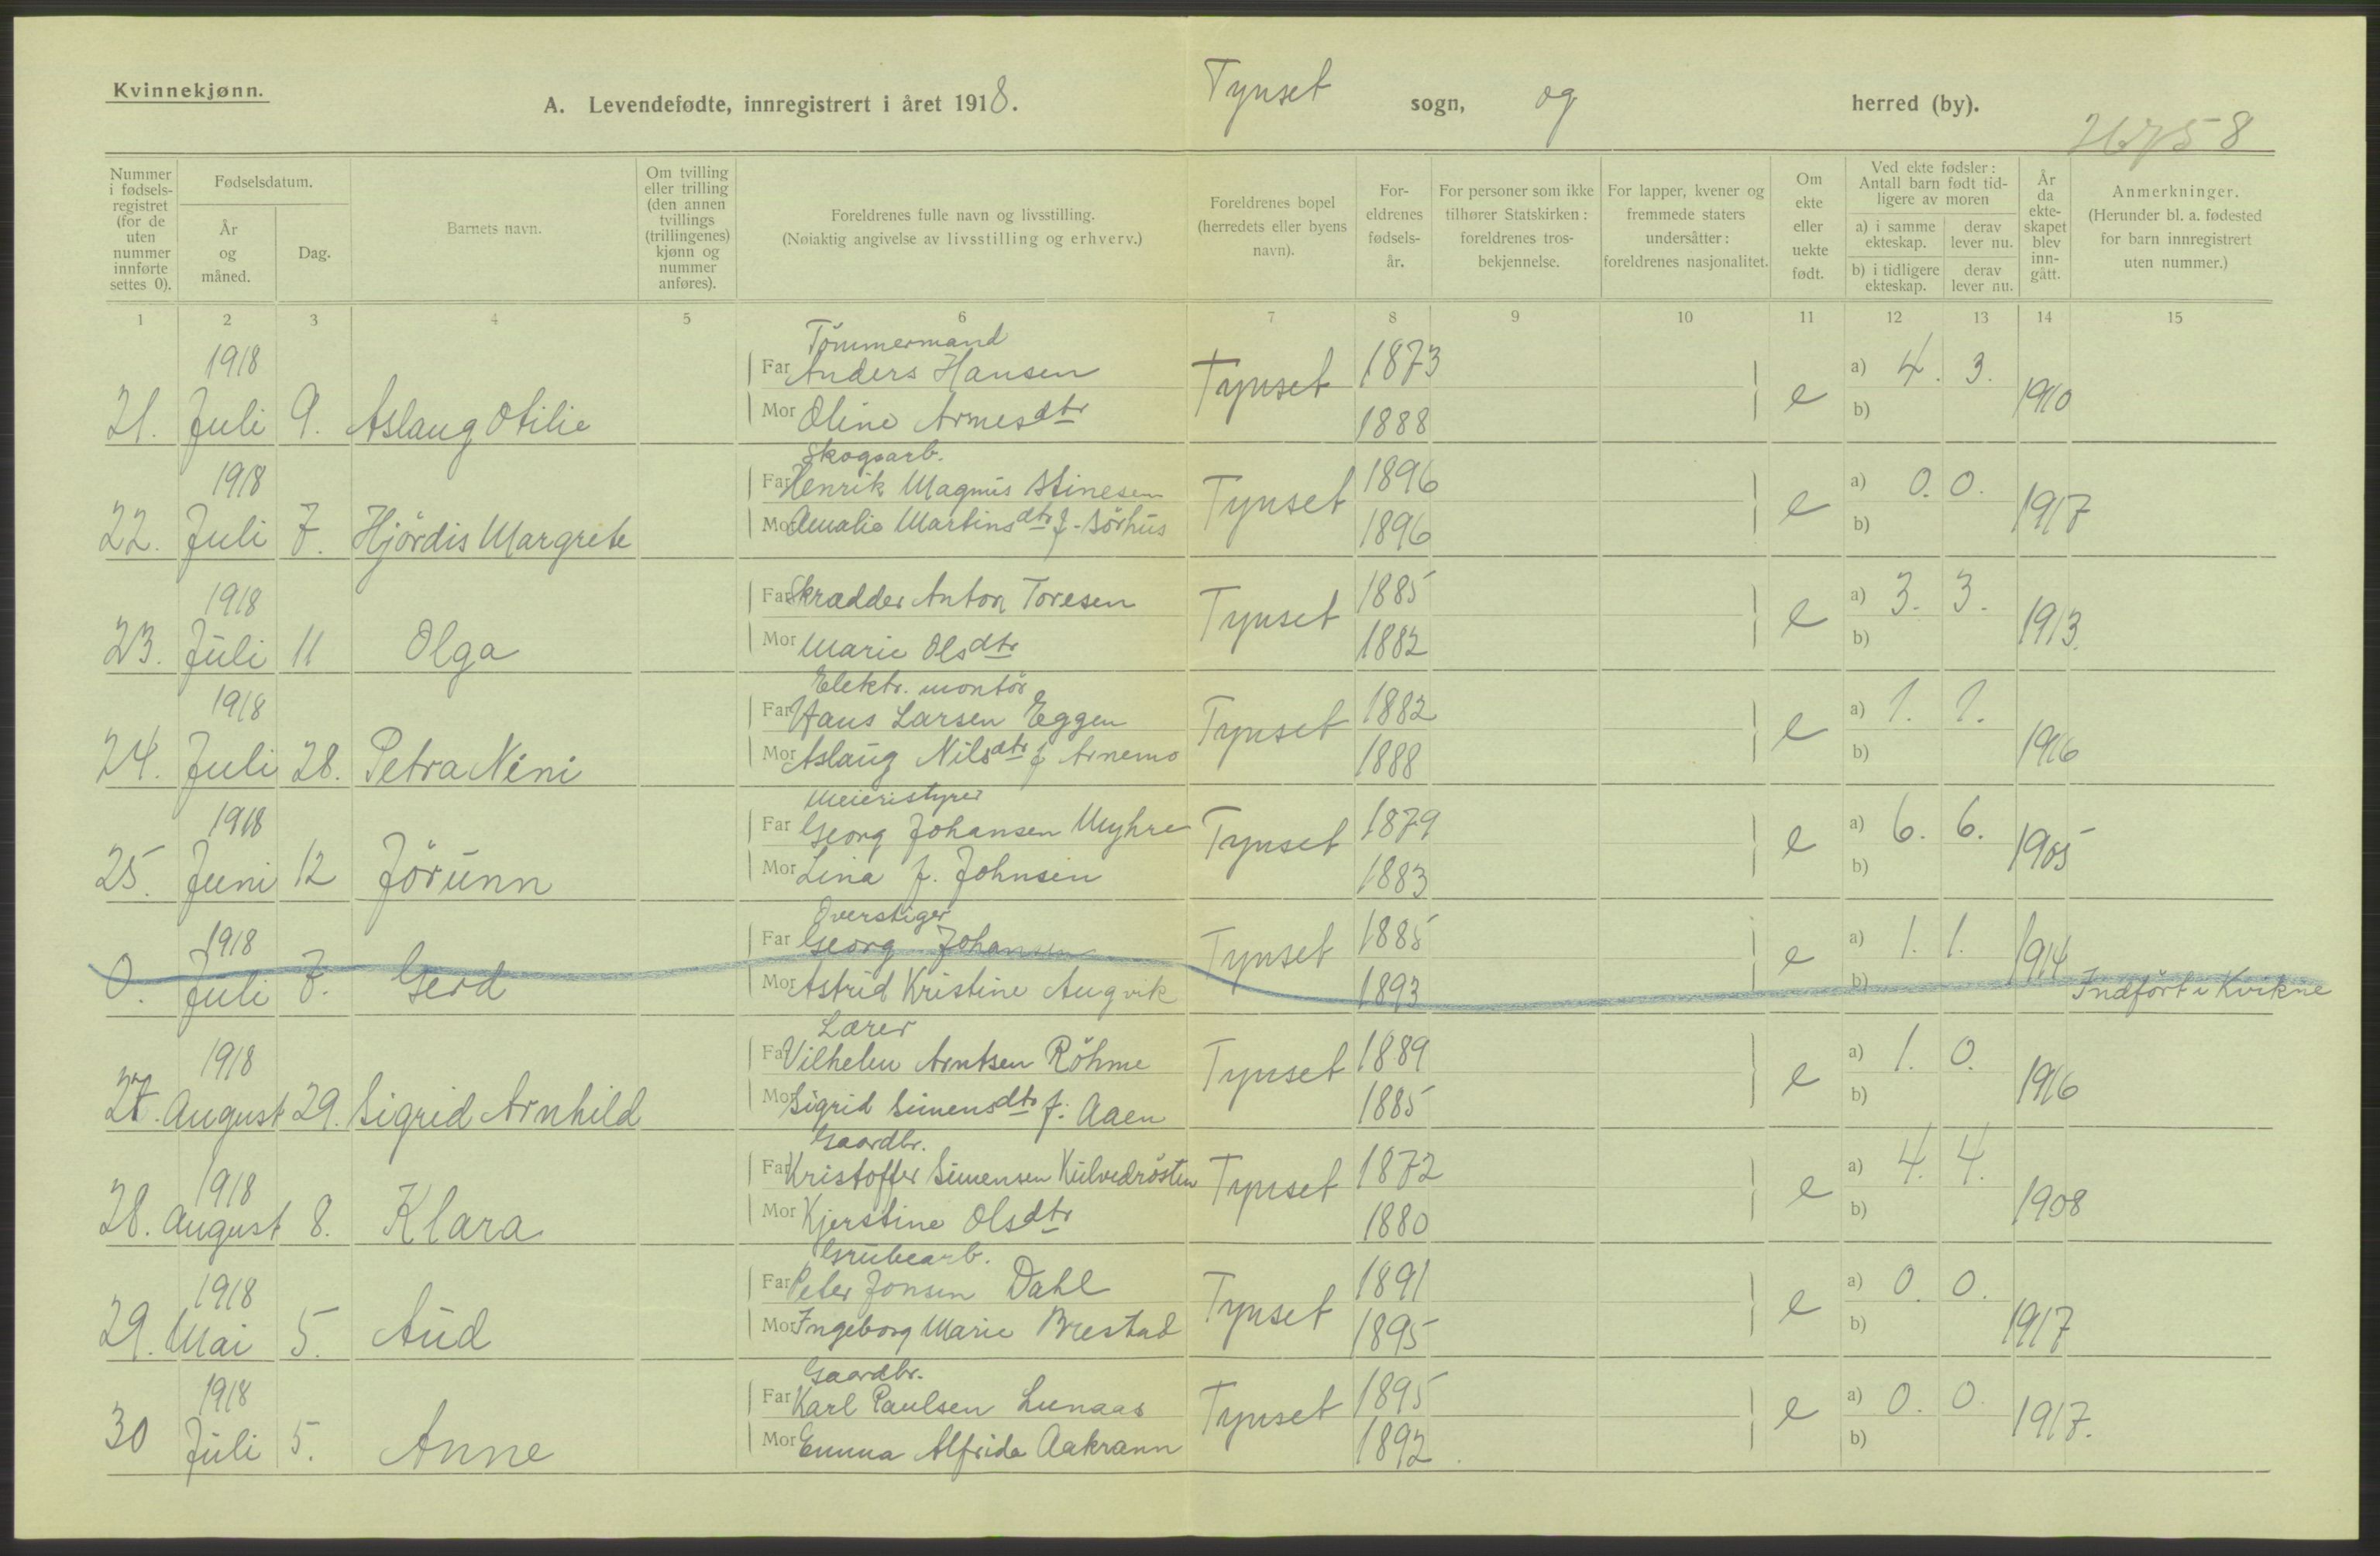 Kvinnekjønn.
A. Levendefødte, innregistrert i året 1918. Tynset sogn, og herred (by).
Nummer i fødsels-registret (for de uten nummer innførte settes 0).
Fødselsdatum.
År og måned.
Dag.
Barnets navn.
Om tvilling eller trilling (den annen tvillings (trillingenes) kjønn og nummer anføres).
Foreldrenes fulle navn og livsstilling.
(Nøiaktig angivelse av livsstilling og erhverv.)
Foreldrenes bopel (herredets eller byens navn).
For-eldrenes fødsels-år.
For personer som ikke tilhører Statskirken: foreldrenes tros-bekjennelse.
For lapper, kvener og fremmede staters undersåtter: foreldrenes nasjonalitet.
Om ekte eller uekte født.
Ved ekte fødsler: Antall barn født tid-ligere av moren
a) i samme ekteskap.
derav lever nu.
b) i tidligere ekteskap.
derav lever nu.
År da ekte-skapet blev inn-gått.
Anmerkninger.
(Herunder bl. a. fødested for barn innregistrert uten nummer.)
1 2 3 4 5 6 7 8 9 10 11 12 13 14 15
Tömmermand
1918 Far Anders Hansen 1873 a) 4. 3.
21. Juli 9. Aslaug Otilie Mor Oline Arnesdtr Tynset 1888 e b) 1910
Skogsarb.
1918 Far Henrik Magnus Stinesen 1896 a) 0. 0.
22. Juli 7. Hjördis Margrete Mor Amalie Martinsdtr f. Sörhus Tynset 1896 e b) 1917
1918 Far Skrædder Anton Toresen 1885 a) 3. 3.
23. Juli 11 Olga Mor Marie Olsdtr Tynset 1882 e b) 1913.
Elektr. montör
1918 Far Hans Larsen Eggen 1882 a) 1. 1.
24. Juli 28. Petra Nini Mor Aslaug Nilsdtr f Arnemo Tynset 1888 e b) 1916
Meieristyrer
1918 Far Georg Johansen Myhre 1879 a) 6. 6.
25. Juni 12 Jörunn Mor Lina f. Johnsen Tynset 1883 e b) 1905
Overstiger
1918 Far Georg Johansen 1885 a) 1. 1.
0. Juli 7. Gerd Mor Astrid Kristine Augvik Tynset 1893 e b) 1914 Indfört i Kvikne
Lærer
1918 Far Vilhelm Arntsen Röhme 1889 a) 1. 0.
27. August 29. Sigrid Arnhild Mor Sigrid Simensdtr f. Aaen Tynset 1885 e b) 1916
Gaardbr.
1918 Far Kristoffer Simensen Kulvedrösten 1872 a) 4. 4.
28. August 8. Klara Mor Kjerstine Olsdtr Tynset 1880 e b) 1908
Grubearb.
1918 Far Peter Jonsen Dahl 1891 a) 0. 0.
29. Mai 5. Aud Mor Ingeborg Marie Brestad Tynset 1895 e b) 1917
Gaardbr.
1918 Far Karl Paulsen Lunaas 1895 a) 0. 0.
30 Juli 5. Anne Mor Emma Alfrida Aakrann Tynset 1892 e b) 1917.